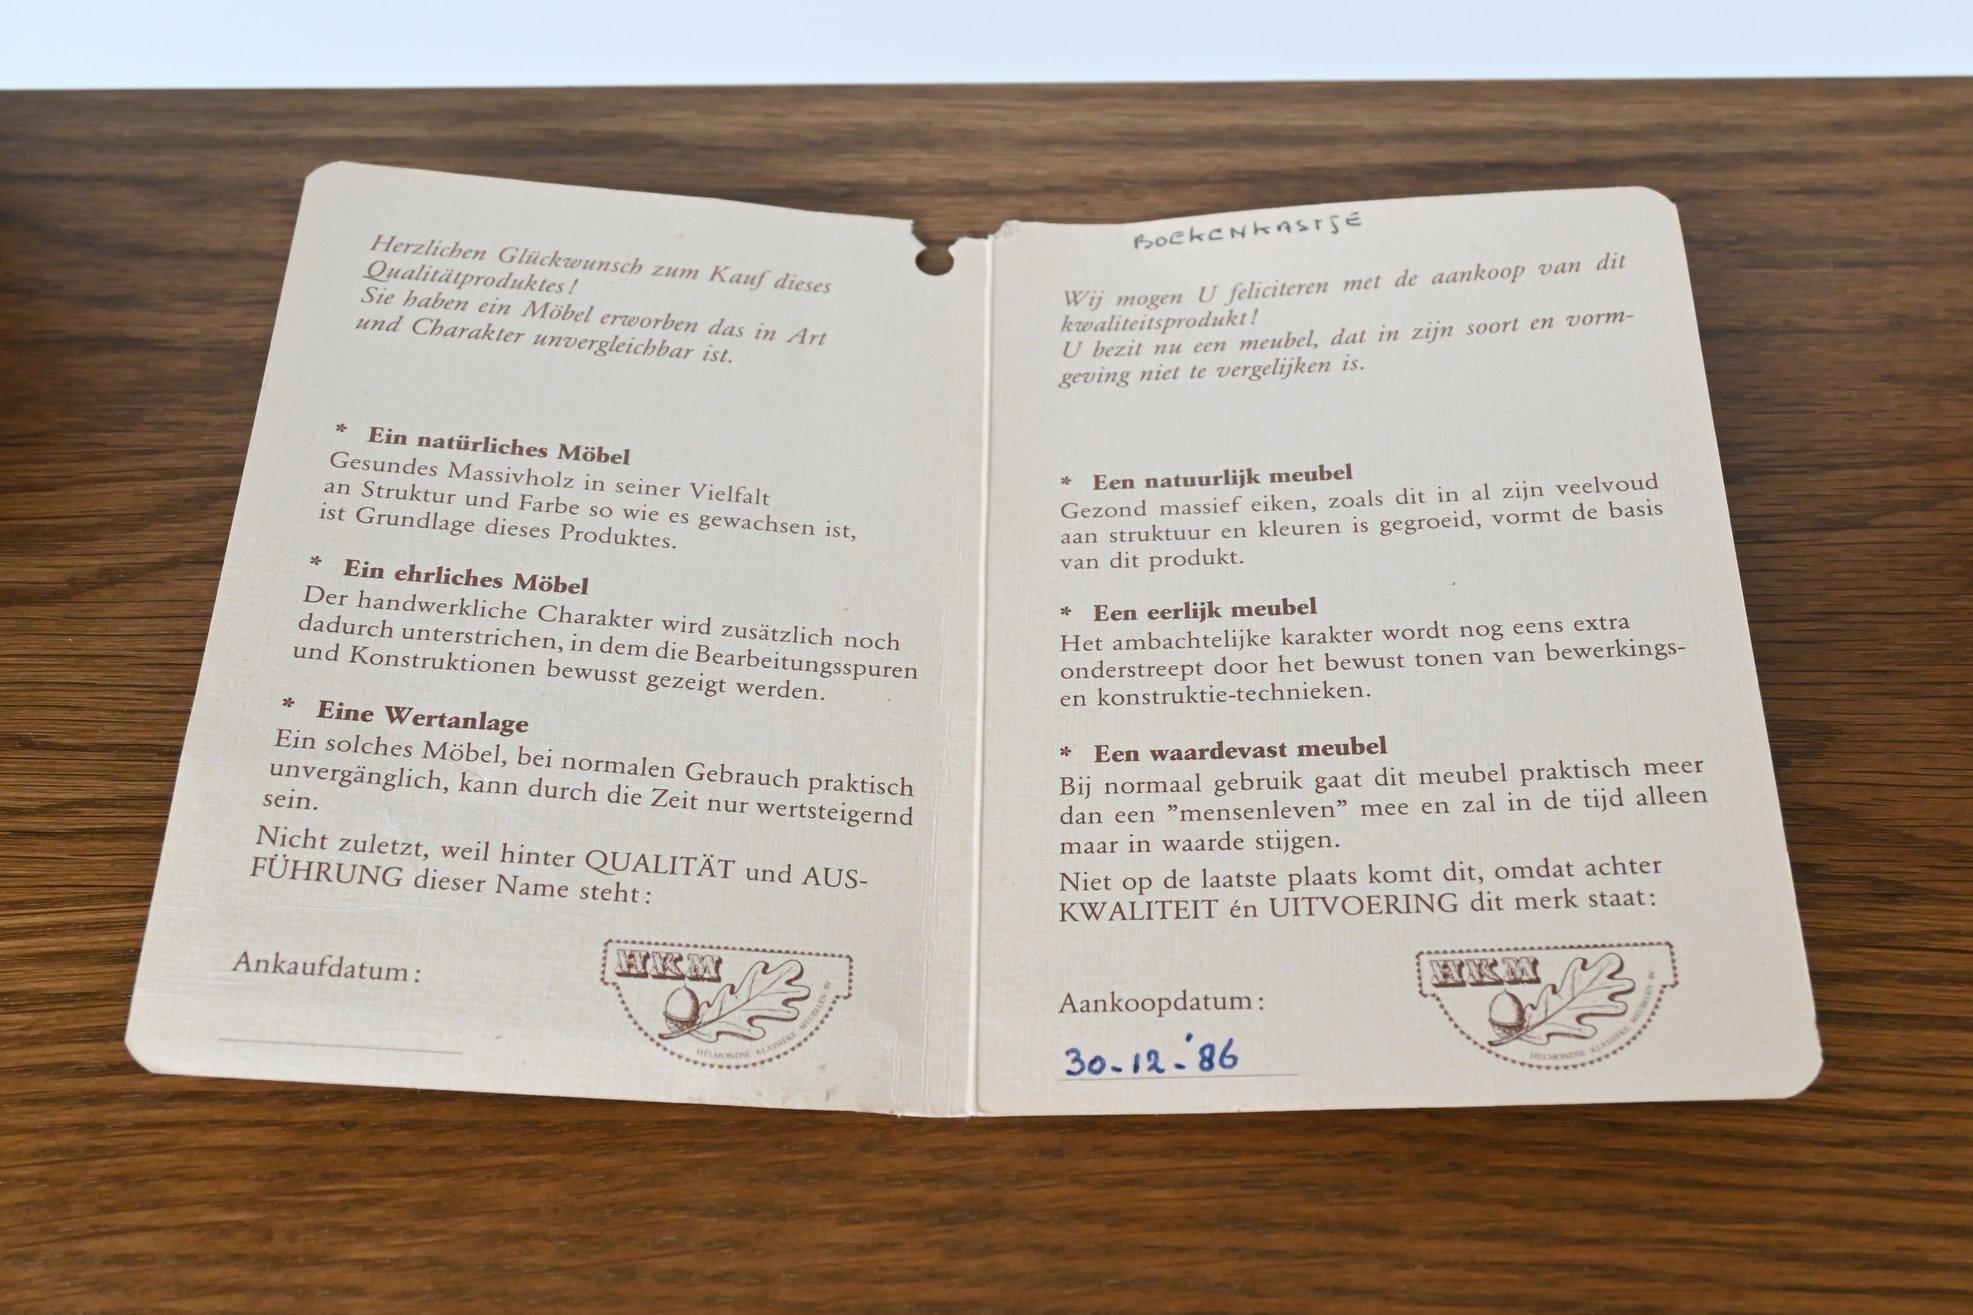 Herzlichen Glückwunsch zum Kauf dieses
Qualitätproduktes!
Sie haben ein Möbel erworben das in Art
und Charakter unvergleichbar ist.
* Ein natürliches Möbel
Gesundes Massivholz in seiner Vielfalt
an Struktur und Farbe so wie es gewachsen ist,
ist Grundlage dieses Produktes.
* Ein ehrliches Möbel
Der handwerkliche Charakter wird zusätzlich noch
dadurch unterstrichen, in dem die Bearbeitungsspuren
und Konstruktionen bewusst gezeigt werden.
* Eine Wertanlage
Ein solches Möbel, bei normalen Gebrauch praktisch
unvergänglich, kann durch die Zeit nur wertsteigernd
sein.
Nicht zuletzt, weil hinter QUALITÄT und AUS-
FÜHRUNG dieser Name steht:
Ankaufdatum:
HKM
HELMONDSE KLASSIEKE MEUBELEN BV
BOEKENKASTJE
Wij mogen U feliciteren met de aankoop van dit
kwaliteitsprodukt!
U bezit nu een meubel, dat in zijn soort en vorm-
geving niet te vergelijken is.
* Een natuurlijk meubel
Gezond massief eiken, zoals dit in al zijn veelvoud
aan struktuur en kleuren is gegroeid, vormt de basis
van dit produkt.
* Een eerlijk meubel
Het ambachtelijke karakter wordt nog eens extra
onderstreept door het bewust tonen van bewerkings-
en konstruktie-technieken.
* Een waardevast meubel
Bij normaal gebruik gaat dit meubel praktisch meer
dan een ”mensenleven” mee en zal in de tijd alleen
maar in waarde stijgen.
Niet op de laatste plaats komt dit, omdat achter
KWALITEIT én UITVOERING dit merk staat:
Aankoopdatum:
30-12-'86
HKM
HELMONDSE KLASSIEKE MEUBELEN BV